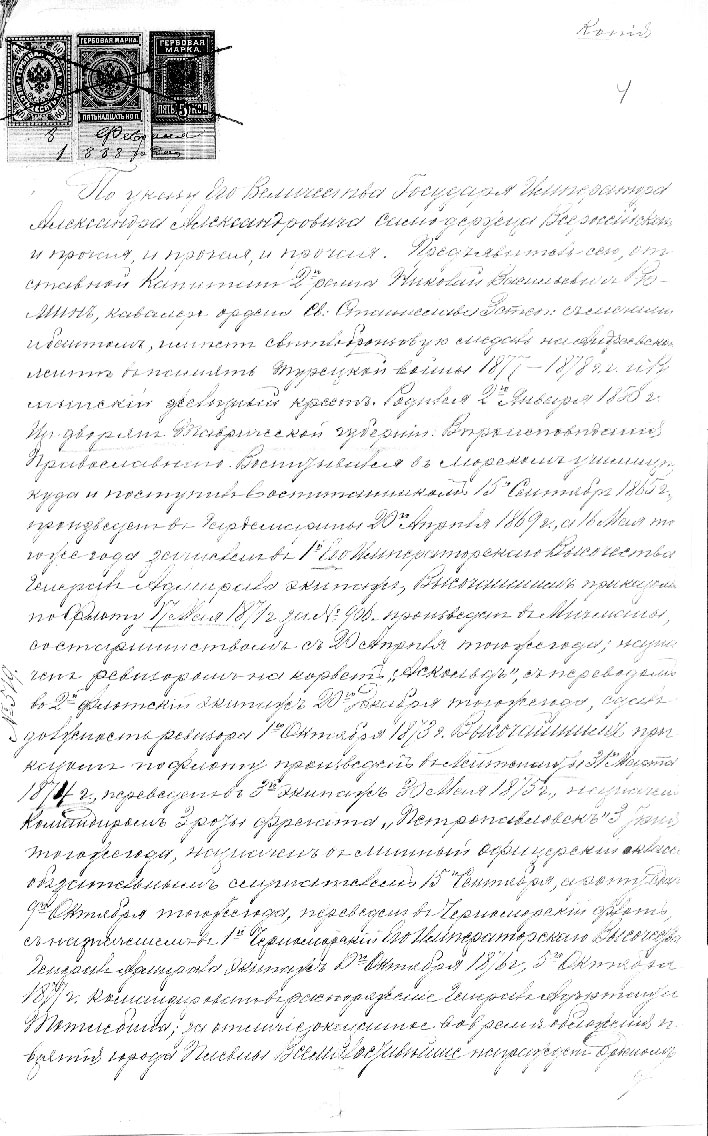 Копія
4
ГЕРБОВАЯ МАРКА
ГЕРБОВАЯ МАРКА
ПЯТНАДЦАТЬ КОП
ПЯТЬ 5 КОП
8 Февраля
1888 года
По указу Его Величества Государя Императора
Александра Александровича Самодержца Всероссійскаго
и прочая, и прочая, и прочая. Предъявитель сего, от
ставной Капитанъ 2го ранга Николай Васильевичъ
минъ, кавалеръ ордена Св: Станислава 3 степ: съ мечами
и бантомъ, имѣетъ свѣтлобронзовую медаль на Андреевской
лентѣ въ память Турецкой войны 1877–1878 г. и
мынскій желѣзный крестъ. Родился 2го Января
Изъ дворянъ Таврической губерніи. Вѣроисповѣданія
Православнаго. Воспитывался въ морскомъ училищѣ,
куда и поступилъ воспитанникомъ 15 Сентября 1865 г.,
произведенъ въ Гардемарины 20го Апрѣля 1869 г., а 16 Мая то
гоже года зачисленъ въ 1й Его Императорскаго Высочества
Генералъ Адмирала экипажъ, Высочайшимъ приказомъ
по флоту 17 Мая 1871 г. за № произведенъ въ Мичманы,
со старшинствомъ съ 20 Апрѣля тогоже года; назна
ченъ ревизоромъ на корветъ „Аскольдъ" съ переводомъ
во 2й флотскій экипажъ 20го тогоже года, сдалъ
должность ревизора 1го Октября 1873 г. Высочайшимъ при
казомъ по флоту произведенъ въ Лейтенанты 31го Марта
1874 г., переведенъ въ 3й экипажъ 30 Мая 1875 г., назначенъ
Командиромъ 3 роты фрегата „Петропавловскъ" 3
тогоже года, назначенъ въ минный офицерскій классъ
обязательнымъ слушателемъ 15го Сентября, а
9го Октября тогоже года, переведенъ въ Черноморскій флотъ,
съ назначеніемъ въ 1й Черноморскій Его Императорскаго Высочества
Генералъ Адмирала экипажъ Октября 1876 г., 5го Октября
1877 г. командированъ въ распоряженіе Генералъ Адъютанта
Тотлебена; за отличіе, оказанное во время обложенія и
взятія города Плевны Всемилостивѣйше награжденъ орденомъ
№ 519.